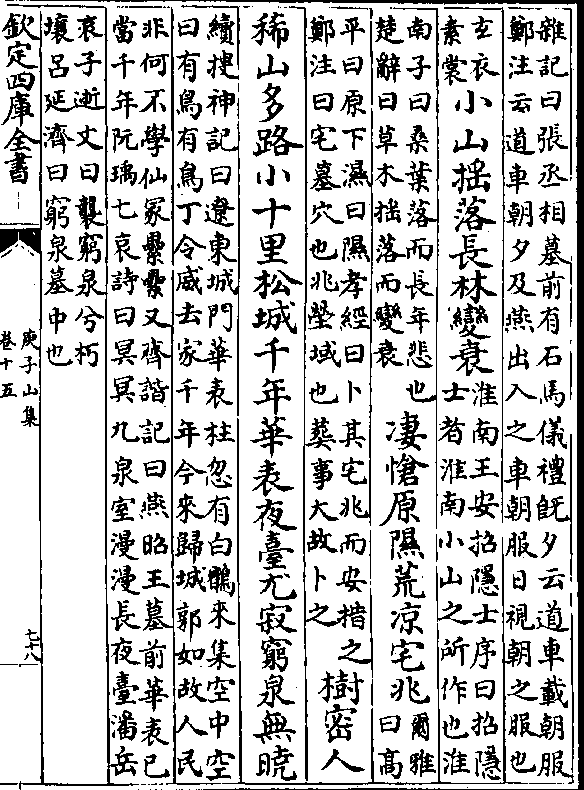 雜記曰張丞相墓前有石馬儀禮旣夕云道車載朝服
鄭注云道車朝夕及燕出入之車朝服日視朝之服也
玄衣
素裳
小山揺落長林變衰
淮南王安招隱士序曰招隱
士者淮南小山之所作也淮
南子曰桑葉落而長年悲也
楚辭曰草木揺落而變衰
凄愴原隰荒凉宅兆
爾雅
曰高
平曰原下濕曰隰孝經曰卜其宅兆而安措之
鄭注曰宅墓穴也兆塋域也葬事大故卜之
樹密人
稀山多路小十里松城千年華表夜臺尤寂窮泉無曉
續搜神記曰遼東城門華表柱忽有白鶴來集空中空
曰有鳥有鳥丁令威去家千年今來歸城郭如故人民
非何不學仙冢纍纍又齊諧記曰燕昭王墓前華表已
當千年阮瑀七哀詩曰冥冥九泉室漫漫長夜臺潘岳
哀子逝文曰襲窮泉兮朽
壤呂延濟曰窮泉墓中也
欽定四庫全書
庾子山集
卷十五
七十八